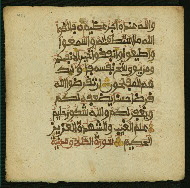 والله عنده اجر عظيم فاتقوا
الله ما استطعتم واسمعوا
واطيعوا وانفقوا خيرا لانفسكم
ومن يوق شح نفسه فاولئك
هم المفلحون ان تقرضوا الله
قرضا حسنا يضعفه لكم
ويغفر لكم والله شكور حليم
علم الغيب والشهدة العزيز
الحكيم سورة الطلاق مدنية